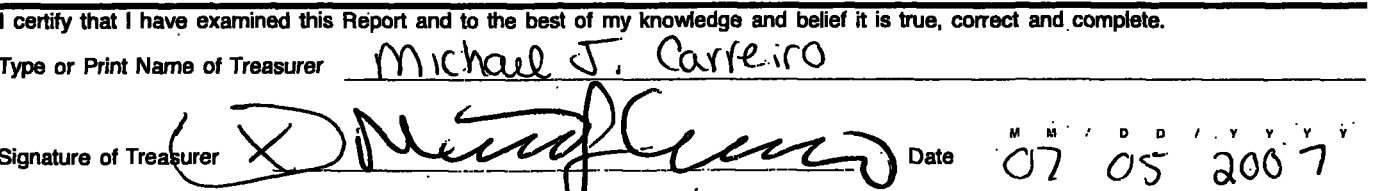 I certify that I have examined this Report and to the best of my knowledge and belief it is true, correct and complete.
Type or Print Name of Treasurer Michael J. Carreiro
Signature of Treasurer X Date M M / D D / Y Y Y Y
07 05 2007